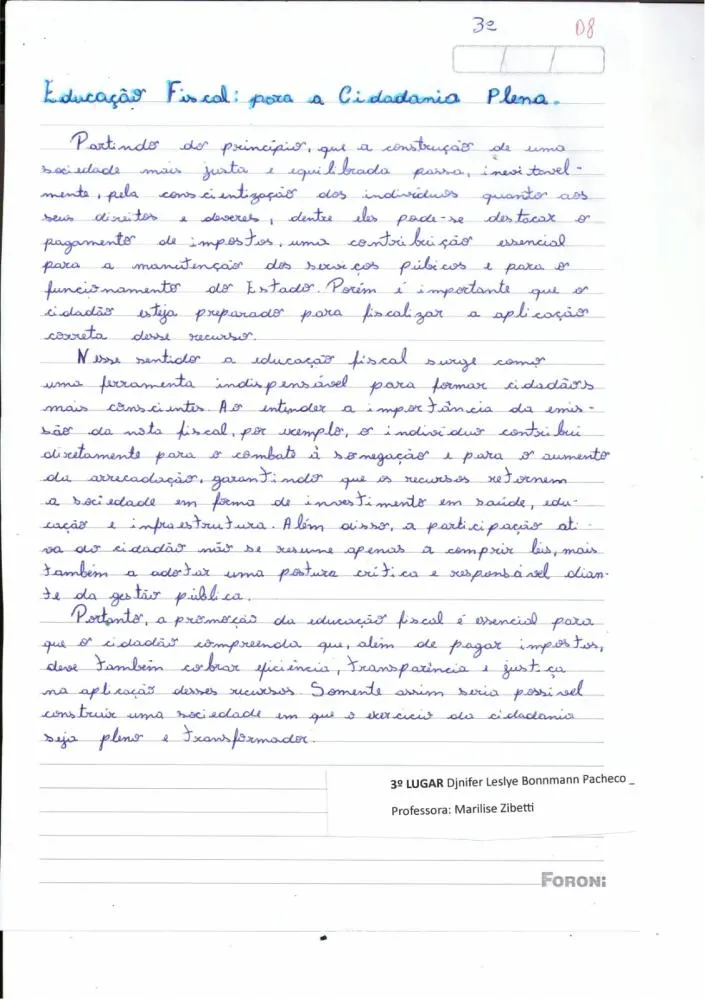 3º
D8
Educação Fiscal: para a Cidadania Plena.
Partindo do princípio, que a construção de uma
sociedade mais justa e equilibrada passa, inevitavel-
mente, pela conscientização dos indivíduos quanto aos
seus direitos e deveres, dentre eles pode-se destacar o
pagamento de impostos, uma contribuição essencial
para a manutenção dos serviços púbicos e para o
funcionamento do Estado. Porém é importante que o
cidadão esteja preparado para fiscalizar a aplicação
correta desse recurso.
Nesse sentido a educação fiscal surge como
uma ferramenta indispensável para formar cidadãos
mais conscientes. Ao entender a importância da emis-
são da nota fiscal, por exemplo, o indivíduo contribui
diretamente para o combate à sonegação e para o aumento
da arrecadação, garantindo que os recursos retornem
a sociedade em forma de investimento em saúde, edu-
cação e infraestrutura. Além disso, a participação ati-
va do cidadão não se resume apenas a comprir leis, mais
também a adotar uma postura crítica e responsável dian-
te da gestão pública.
Portanto, a promoção da educação fiscal é essencial para
que o cidadão compreenda que, além de pagar impostos,
deve também cobrar eficiência, transparência e justiça
na aplicação desses recursos. Somente assim seria possível
construir uma sociedade em que o exercício da cidadania
seja pleno e transformador.
3º LUGAR Djnifer Leslye Bonnmann Pacheco _
Professora: Marilise Zibetti
FORONI